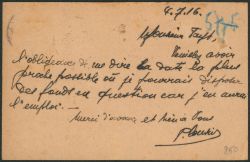 4.7.16.
Monsieur Taft,
Veuillez avoir
l'obligeance de me dire la date la plus
proche possible où je pourrais disposer
des fonds en question car j'en aurai
l'emploi. —
Merci d'avance et bien à Vous